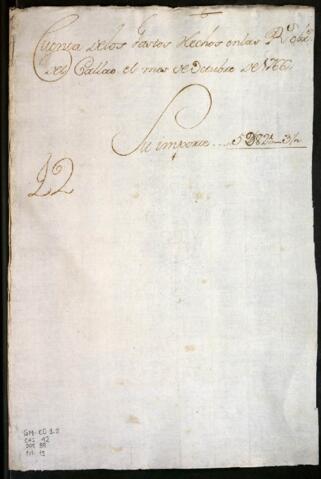 Cuenta delos Gastos Hechos enlas Rs Obrs
del Callao, el mes de Octubre de 1766
Su importe....5D825_3½
22
GM-CO 1.2
CAJ 42
DOC 88
Fol 12